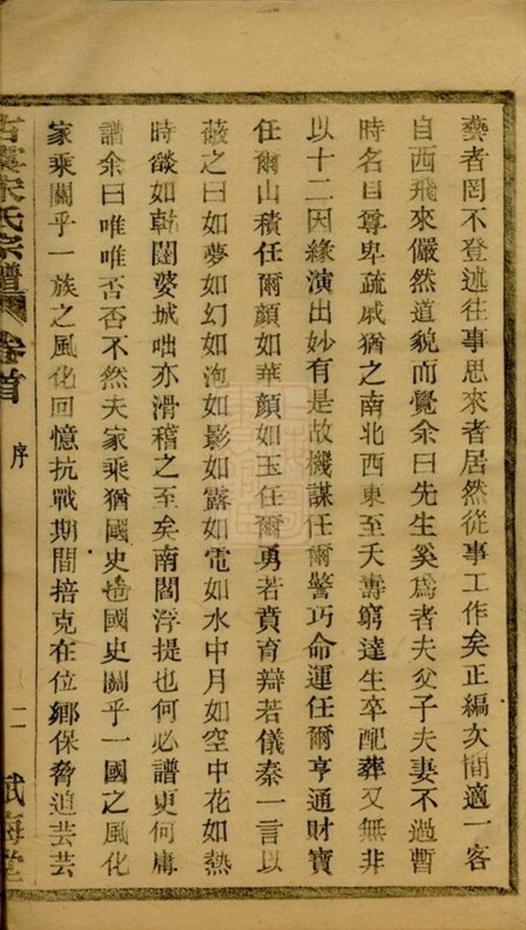 藝者罔不登述往事思來者居然從事工作矣正編次間適一客
自西飛來儼然道貌而覺余曰先生奚為者夫父子夫妻不過暫
時名目尊卑疏戚猶之南北西東至夭壽窮達生卒配葬又無非
以十二因緣演出妙有是故機謀任爾警巧命運任爾亨通財寶
任爾山積任爾顏如華顏如玉任爾勇若賁育辯若儀秦一言以
蔽之曰如夢如幻如泡如影如露如電如水中月如空中花如熱
時燄如乾闥婆城咄亦滑稽之至矣南閻浮提也何必譜更何庸
譜余曰唯唯否否不然夫家乘猶國史也國史關乎一國之風化
家乘關乎一族之風化回憶抗戰期間掊克在位鄉保脅迫芸芸
宋氏宗譜 卷首 序 二